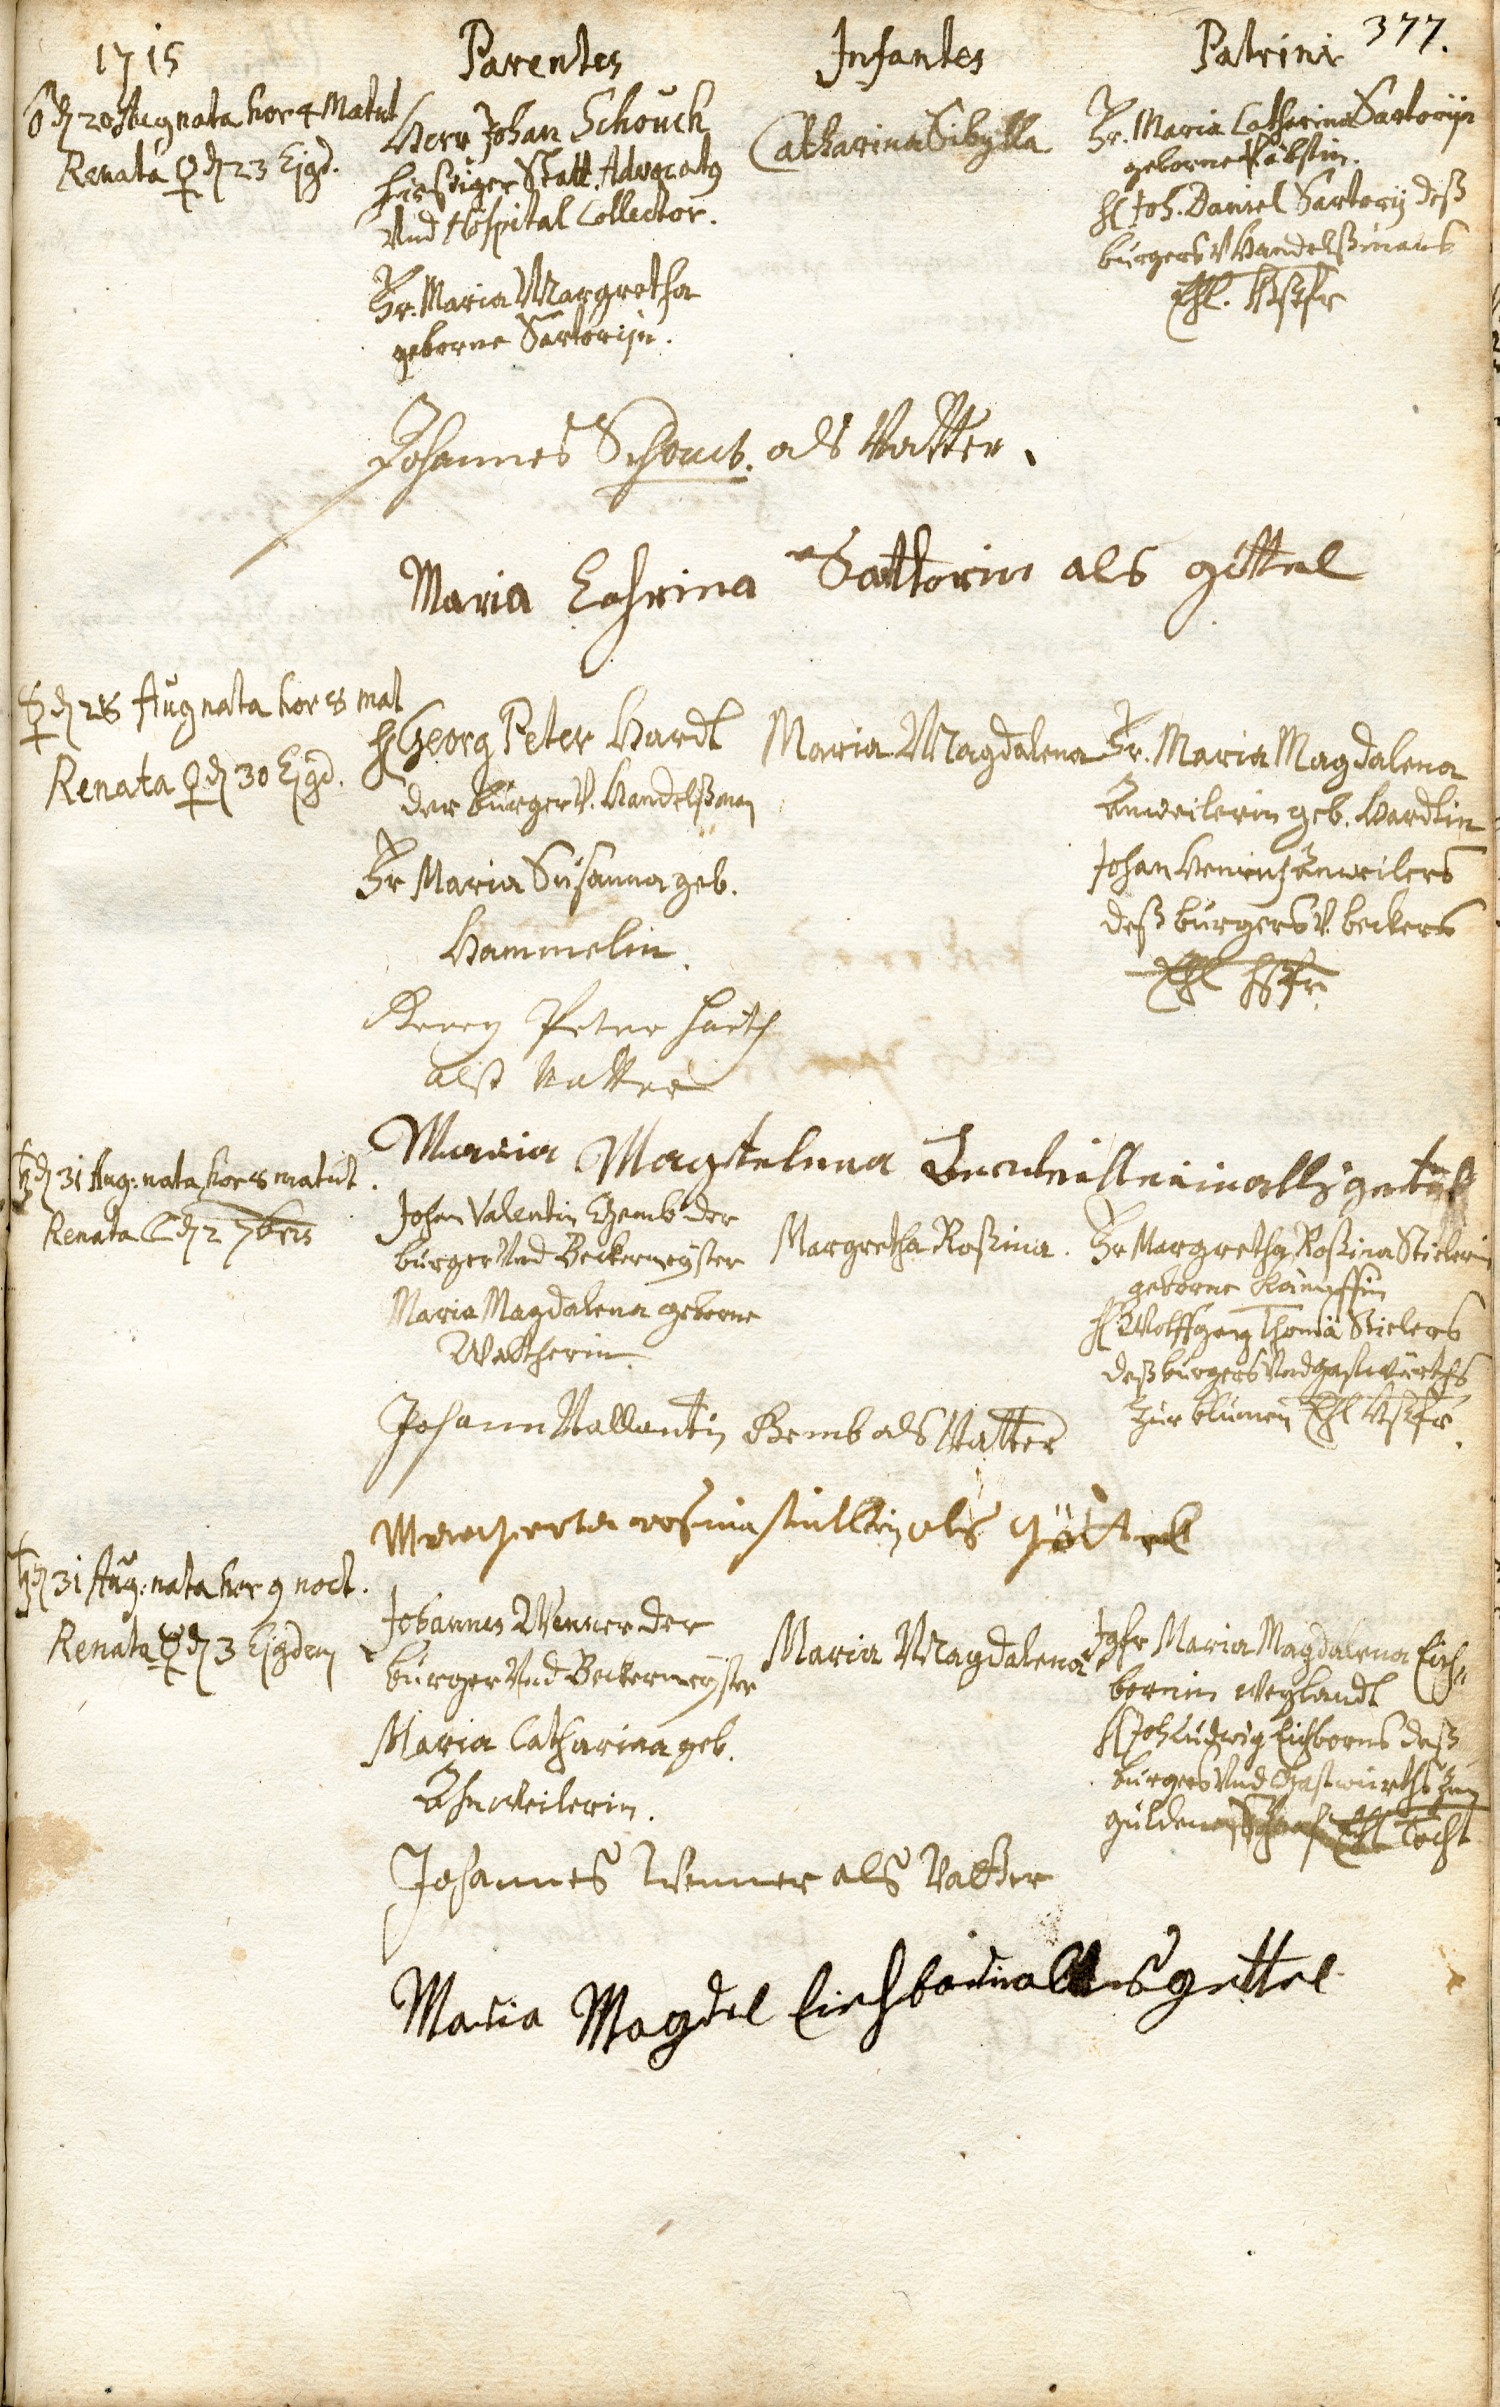 377.
1715 Parentes Infantes Patrini
♂ d 20 Aug nata hor 4 Matut
Renata ♀ d 23 Ejgd.
Herr Johan Schouch
hiesiger Statt Advocatg
Und Hospital Collector.
Fr. Maria Margretha
geborne Sartorijn.
Catharina Sibylla
Fr. Maria Catharina Sartorijn
geborne Päbstin.
H Joh. Daniel Sartorij deß
bürgers V Handelßmans
Ehl. Haßfr
Johannes Schouch. als Vatter.
Maria Sattorin als göttel
d 28 Aug nata hor 8 mat
Renata ♀ d 30 Ejgd.
H Georg Peter Hardt
der bürger V. Handelßman
Fr Maria Susanna geb.
Hammelin.
Maria Magdalena
Fr. Maria Magdalena
geb. Hardtin
Johan Henrich
deß bürgers V. beckers
Ehl Hßfr
Peter
alß Vatter
Maria Magdalena
♄ d 31 Aug: nata hor 8 matut.
Renata ☾ d 2 7bris
Johan Valentin Gemb der
bürger Und Beckermeyster
Maria Magdalena geborne
Waltherin.
Margretha Roßina.
Fr Margretha Roßina Stielerin
geborne Kämpffin
H Wolffgang Thomä Stielers
deß bürgers Und gastwürths
Zur blumen Ehl Hßfr.
Johann Vallantin Gemb als Vatter
rosina als Göttel
♄ d 31 Aug: nata hor 9 noct.
Renata d 3 Ejgdem
Johannes Wenner der
bürger Und Beckermeyster
Maria Catharina geb.
Ahnweilerin.
Maria Magdalena
Jgfr Maria Magdalena Eich-
bornin weylandt
H Joh Ludwig Eichborns deß
bürgers Und Gastwürths Zum
güldenen Schaaf Ehl Tocht
Johannes Wenner als Vatter
Maria Magdel als gettel